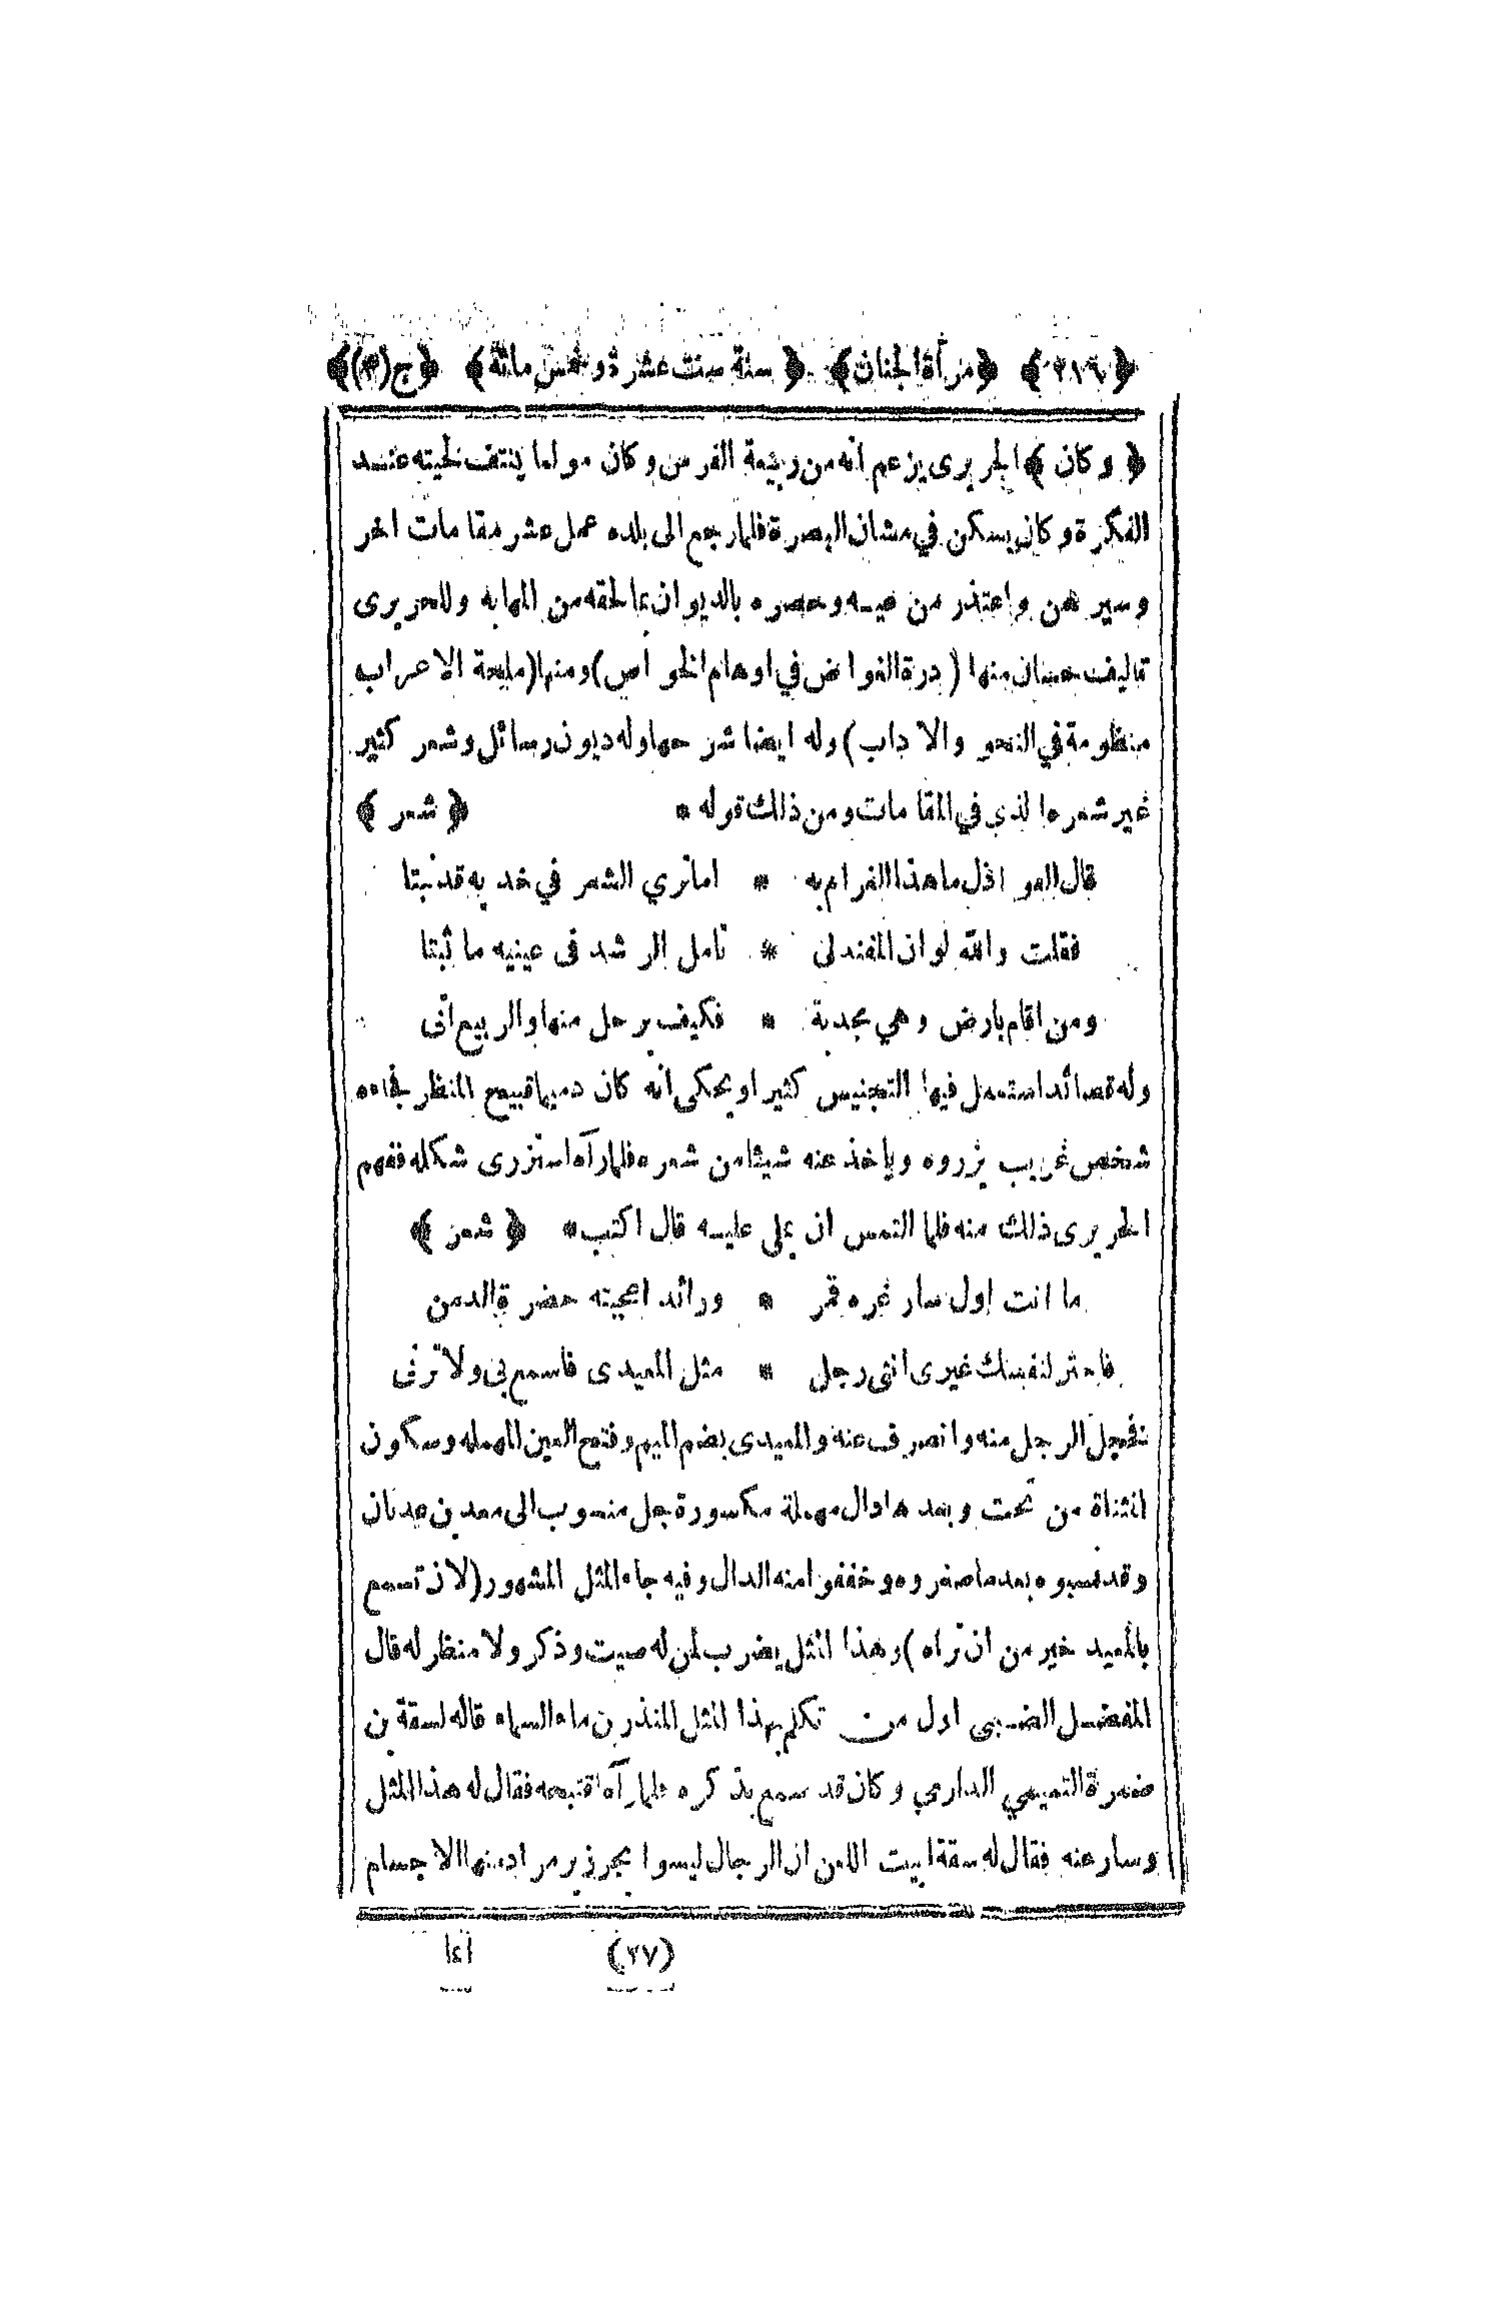 ﴿ ٢١٦ ﴾ ﴿ مرآة الجنان ﴾ ﴿ سنة ست عشرة وخمس مائة ﴾ ﴿ ج (٣) ﴾
﴿ وكان ﴾ الحريرى يزعم انه من ربيعة الفرس وكان مولعا ينتف لحيته عند
الفكرة وكان يسكن في مشان البصرة فلما رجع الى بلده عمل عشر مقامات اخر
وسيرهن واعتذر من عيه وحصره بالديوان بما لحقه من المهابه وللحريرى
تاليف حسان منها (درة الغواص في اوهام الخواص) ومنها (ملحة الاعراب
منظومة في النحو والاداب) وله ايضا شرحها وله ديون رسائل وشعر كثير
غير شعره الذي في المقامات ومن ذلك قوله * ﴿ شعر ﴾
قال العواذل ما هذا الغرام به * اما ترى الشعر في خديه قد نبتا
فقلت والله لو ان المفند لى * تامل الرشد فى عينيه ما ثبتا
ومن اقام بارض وهي مجدبة * فكيف يرحل منها والربيع اتى
وله قصائد استعمل فيها التجنيس كثيرا ويحكى انه كان دميما قبيح المنظر فجاءه
شخص غريب يزروه وياخذ عنه شيئا من شعره فلما رآه استزرى شكله ففهم
الحريرى ذلك منه فلما التمس ان يملى عليه قال اكتب * ﴿ شعر ﴾
ما انت اول سار غره قمر * ورائد اعجبته خضرة الدمن
فاختر لنفسك غيرى اننى رجل * مثل المعيدى فاسمع بى ولا ترنى
فخجل الرجل منه وانصرف عنه والمعيدى بضم الميم وفتح العين المهمله وسكون
المثناة من تحت وبعدها دال مهملة مكسورة جل منسوب الى معد بن عدنان
وقد نسبوه بعد ما صغروه وخففوا منه الدال وفيه جاء المثل المشهور (لان تسمع
بالمعيد خير من ان تراه) وهذا المثل يضرب لمن له صيت وذكر ولا منظر له قال
المفضل الضبى اول من تكلم بهذا المثل المنذر بن ماء السماء قاله لسقة بن
ضمرة التميمي الدارمي وكان قد سمع بذكره فلما رآه اقتبحه فقال له هذا المثل
وسار عنه فقال له سقة ابيت اللعن ان الرجال ليسوا بجرز يراد منها الاجسام
(٢٧)